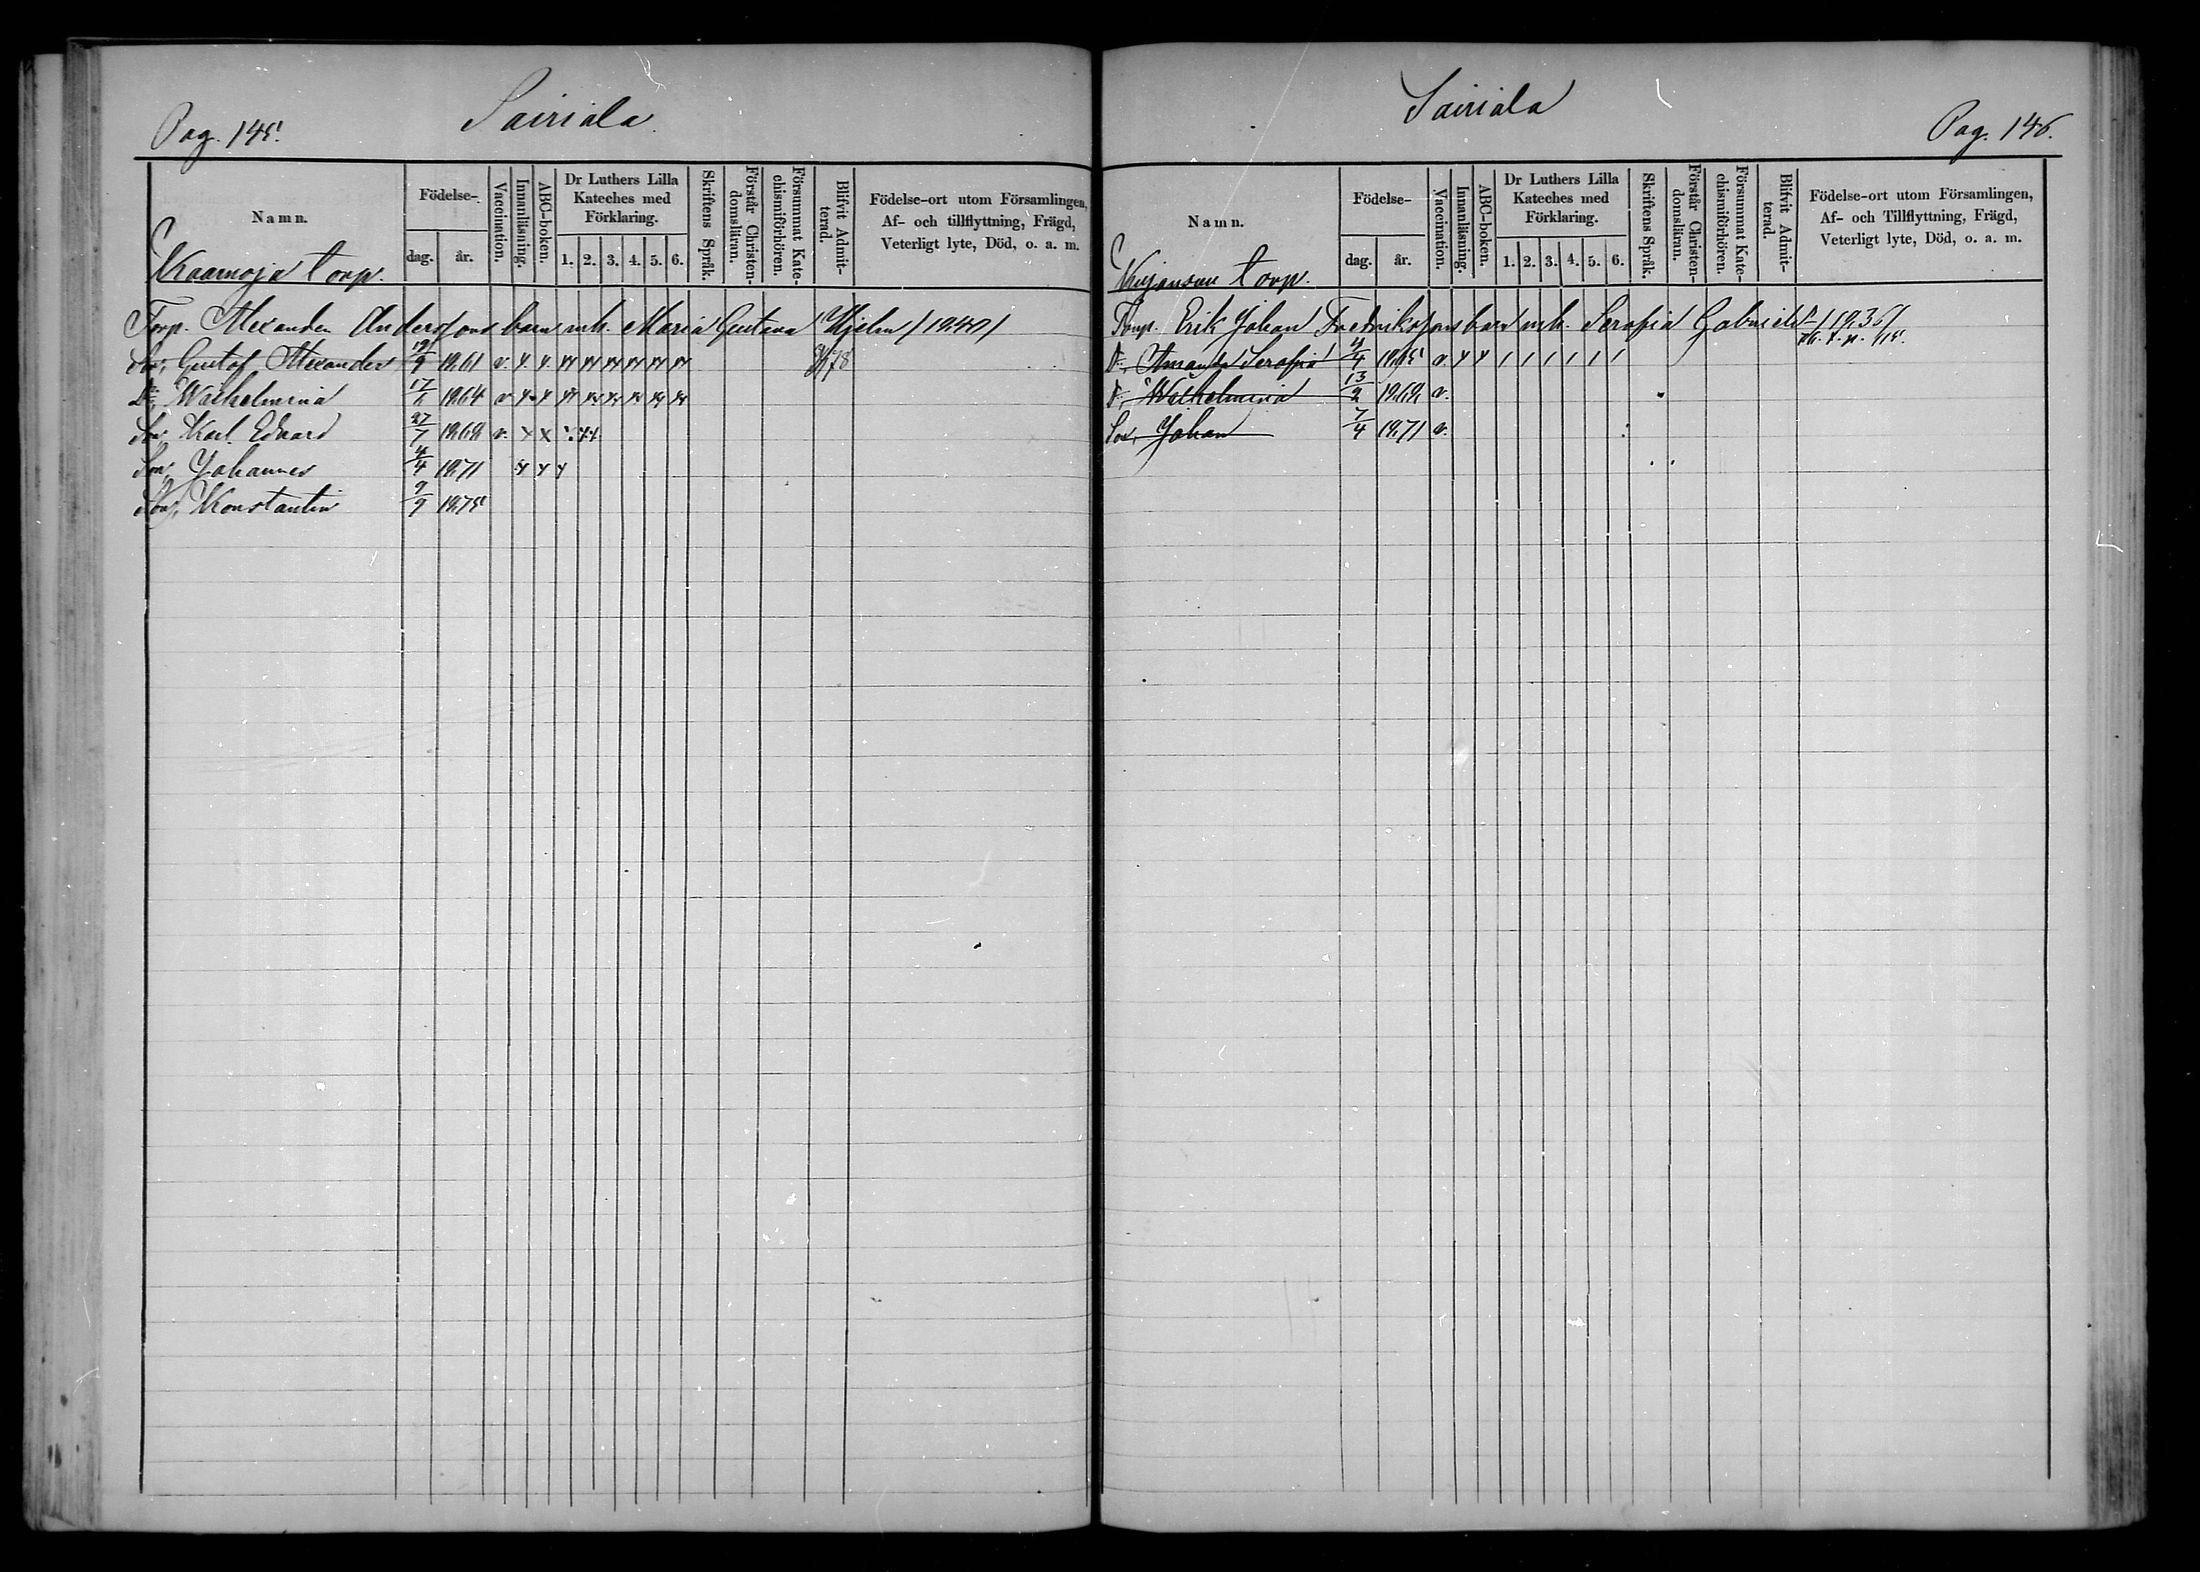 Pag. 145.
Sairiala.
Namn.
Födelse-
dag.
år.
Vaccination.
Innanläsning.
ABC-boken.
Dr Luthers Lilla
Kateches med
Förklaring.
1. 2. 3. 4. 5. 6.
Skriftens Språk.
Förstår Christen-
domsläran.
Försummat Kate-
chismiförhören.
Blifvit Admit-
terad.
Födelse-ort utom Församlingen,
Af- och tillflyttning, Frägd,
Veterligt lyte, Död, o. a. m.
Kaarnoja torp.
Torp. Alexander Anderssons barn m h. Maria Gustava Hjelm /1840/
Son, Gustaf Alexander 1861 v. x x
Dr, Wilhelmina 17/1 1864 v x x
Son Karl Edvard 27/7 1868 v. x x
Son, Johannes 4/4 1871 x x x
Son, Konstantin 9/9 1875
Sairiala
Pag. 146.
Namn.
Födelse-
dag.
år.
Vaccination.
Innanläsning.
ABC-boken.
Dr Luthers Lilla
Kateches med
Förklaring.
1. 2. 3. 4. 5. 6.
Skriftens Språk.
Förstår Christen-
domsläran.
Försummat Kate-
chismiförhören.
Blifvit Admit-
terad.
Födelse-ort utom Församlingen,
Af- och Tillflyttning, Frägd,
Veterligt lyte, Död, o. a. m.
Kujansuu torp.
Torp. Erik Johan Fredrikssons barn m h. Serafia Gabriels dr /1836/
Dr, Amanda Serafia 1865 v. x x / / / / / /
Dr, Wilhelmina 13/2 1868 v.
Son, Johan 7/4 1871 v.